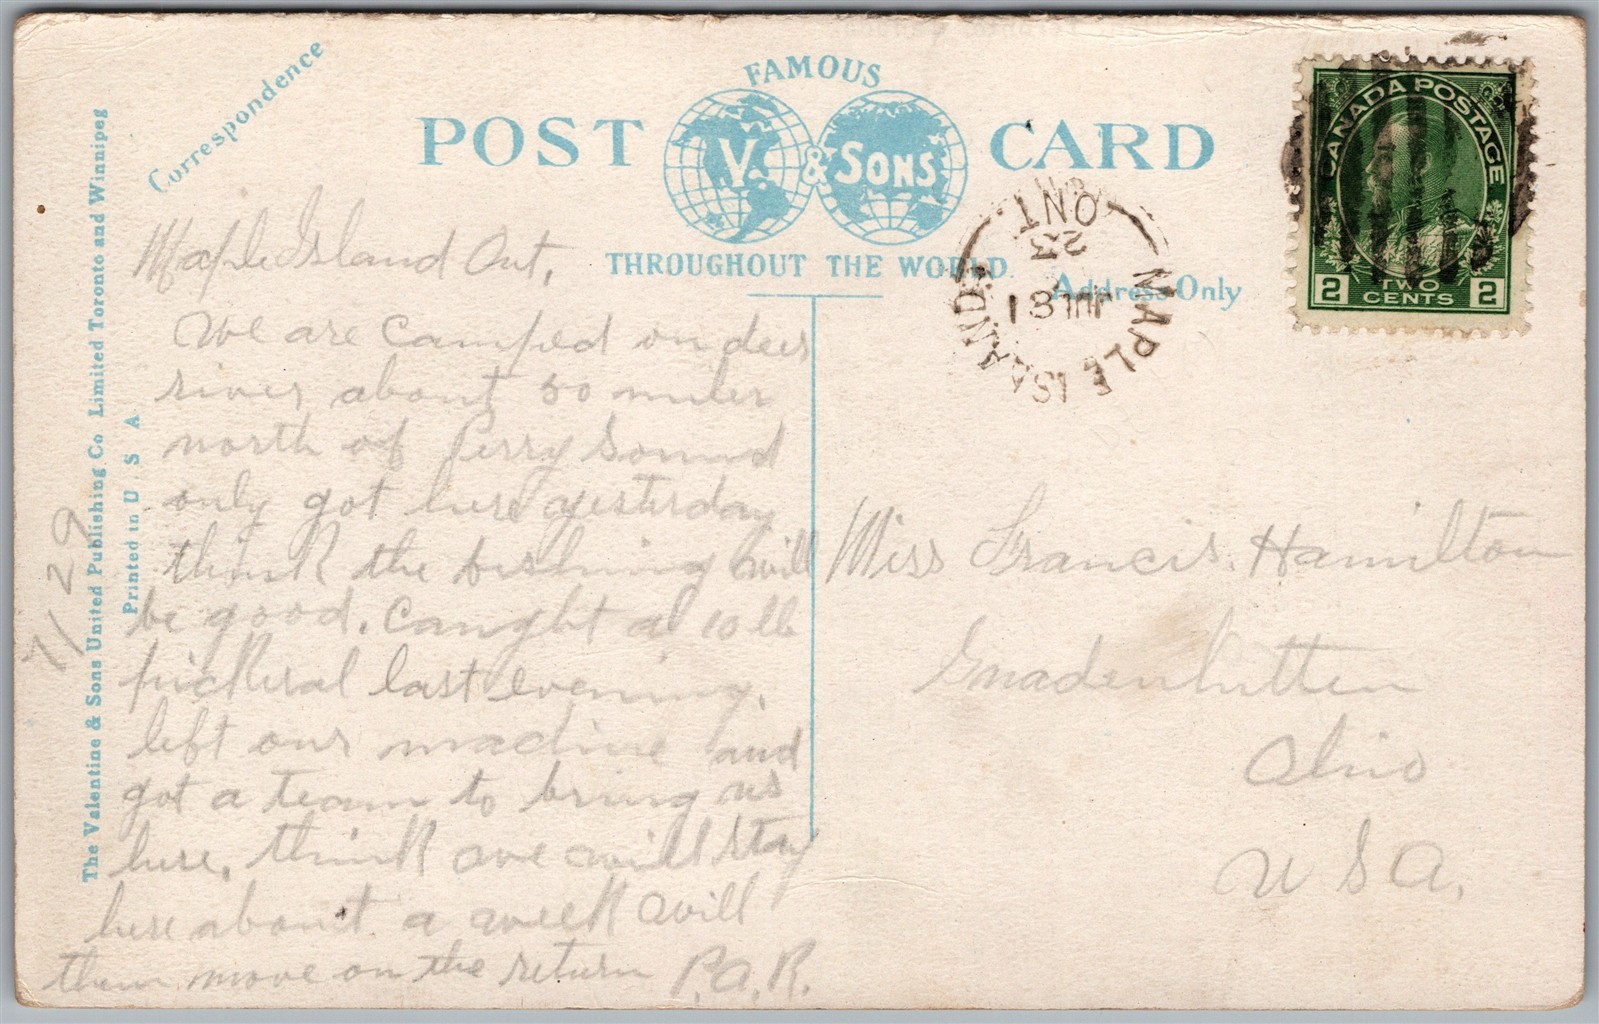 Correspondence
FAMOUS
POST CARD
V. & SONS
THROUGHOUT THE WORLD
Address Only
CANADA POSTAGE
2 TWO CENTS 2
MAPLE ISLAND
ONT
JUL 31
23
The Valentine & Sons United Publishing Co Limited Toronto and Winnipeg
Printed in U S A
7/29
Maple Island Ont.
We are camped on deer
river about 50 miles
north of Perry Sound
only got here yesterday
think the fishing will
be good. Caught a 10 lb
pickeral last evening.
left our machine and
got a team to bring us
here. think we will stay
here about a week will
then move on the return P.A.R.
Miss Francis Hamilton
Gnadenhutten
Ohio
U S A.